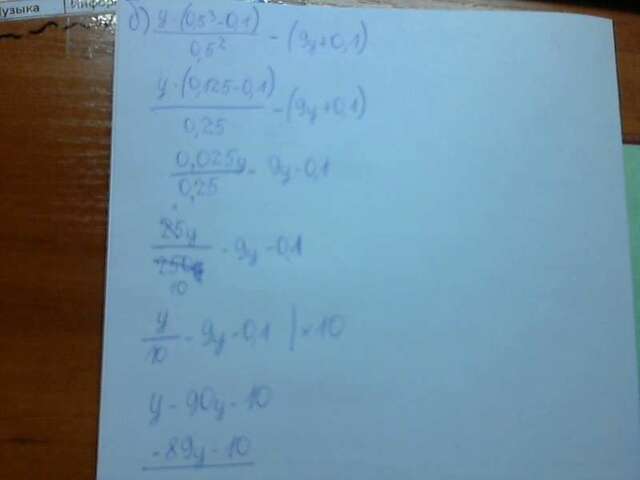 Музыка
б) y·(0,5³-0,1)/0,5² - (9y+0,1)
y·(0,125-0,1)/0,25 - (9y+0,1)
0,025y/0,25 - 9y-0,1
25y/250 10 - 9y-0,1
y/10 - 9y-0,1 | ×10
y-90y-10
-89y-10